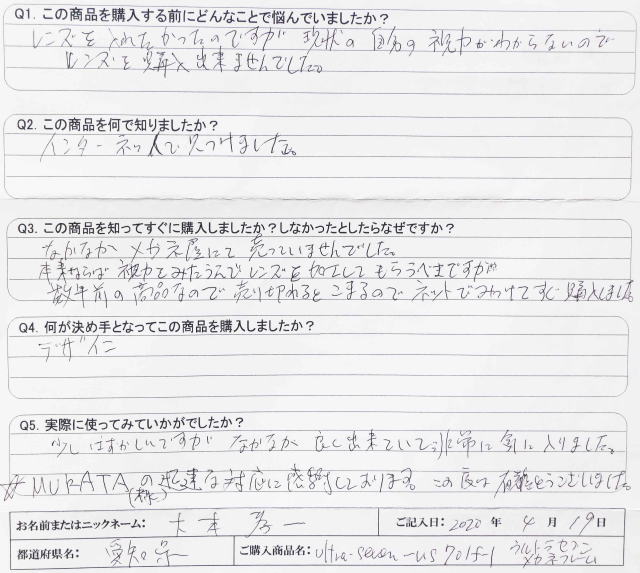 Q1. この商品を購入する前にどんなことで悩んでいましたか？
レンズを入れたかったのですが 現状の 自分の 視力がわからないので
レンズを購入出来ませんでした。
Q2. この商品を何で知りましたか？
インターネットで見つけました。
Q3. この商品を知ってすぐに購入しましたか？しなかったとしたらなぜですか？
なかなか メガネ屋にて 売っていませんでした。
本来ならば 視力をみたうえでレンズを加工して もらうべきですが
数年前の商品なので売り切れると こまるので ネットでみつけてすぐ購入しました。
Q4. 何が決め手となってこの商品を購入しましたか？
デザイン
Q5. 実際に使ってみていかがでしたか？
少しはずかしいですが なかなか 良く出来ていて 非常に 気に入りました。
# MURATA(株)の迅速な対応に感謝しております。この度は有難うございました。
お名前またはニックネーム： 大本
ご記入日：2020 年 4 月 19 日
都道府県名： 愛知県
ご購入商品名：ultra-seven-us 701f-1 ウルトラセブン
メガネフレーム